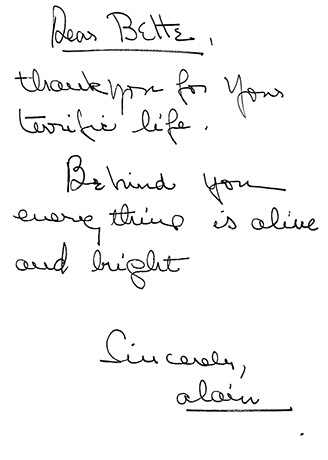 Dear Bette,
thank you for your
terrific life.
Behind you
everything is alive
and bright
Sincerely,
alain